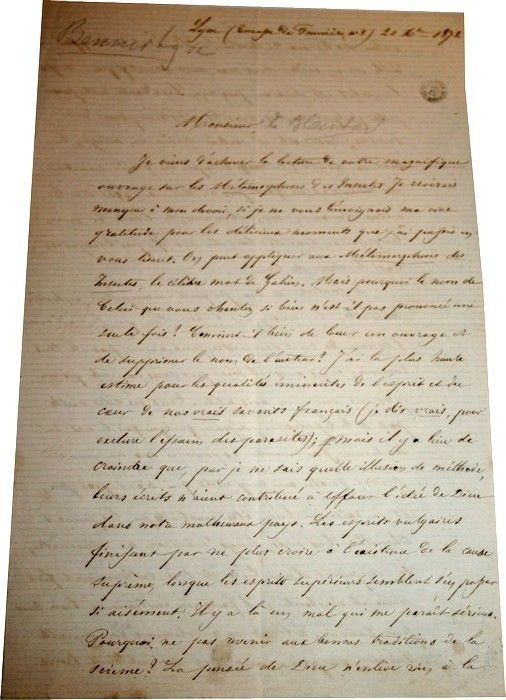 Lyon (Terrasse de Fourvière, n° 8) 20 Xbre 1872
Monsieur
Je viens d'achever la lecture de votre magnifique
ouvrage sur les Métamorphoses des Insectes. Je croirais
manquer à mon devoir, si je ne vous témoignais ma vive
gratitude pour les délicieux moments que j'ai passés en
vous lisant. On peut appliquer aux Métamorphoses des
Insectes, le célèbre mot de Galien. Mais pourquoi le nom de
Celui que vous chantez si bien n'est-il pas prononcé une
seule fois? Convient-il bien de louer un ouvrage et
de supprimer le nom de l'auteur? J'ai la plus haute
estime pour les qualités éminentes de l'esprit et du
cœur de nos vrais savants français (je dis vrais, pour
exclure l'essaim des parasites); mais il y a lieu de
craindre que, par je ne sais quelle illusion de méthode,
leurs écrits n'aient contribué à effacer l'idée de Dieu
dans notre malheureux pays. Les esprits vulgaires
finissant par ne plus croire à l'existence de la cause
suprême, lorsque les esprits supérieurs semblent s'en passer
si aisément. Il y a là un mal qui me paraît sérieux.
Pourquoi ne pas revenir aux bonnes traditions de la
science? La pensée de Dieu n'enlève rien à la